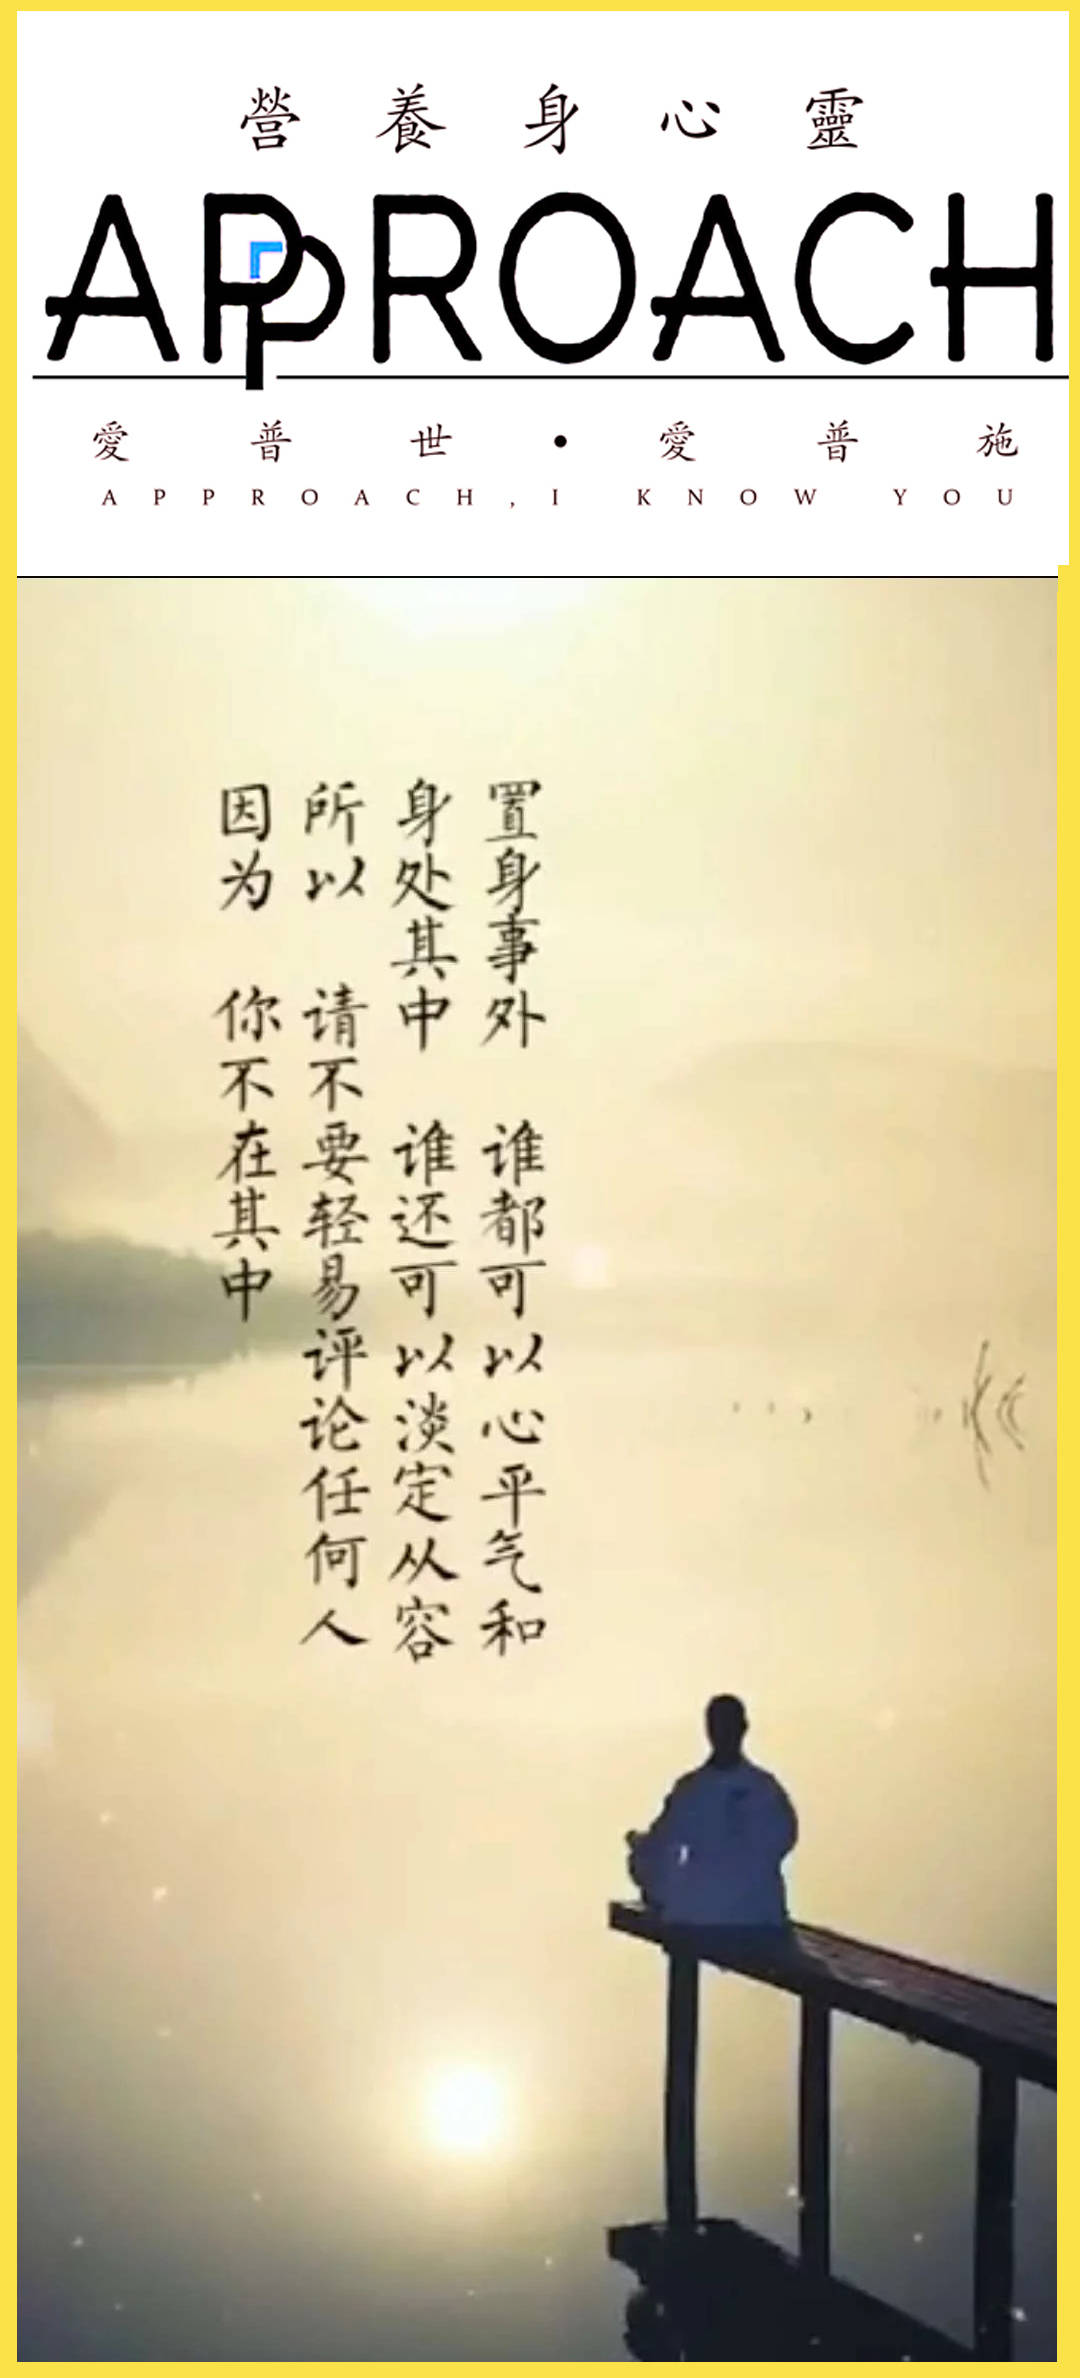 營養身心靈
APPROACH
愛普世·愛普施
APPROACH,I KNOW YOU
置身事外 谁都可以心平气和
身处其中 谁还可以淡定从容
所以 请不要轻易评论任何人
因为 你不在其中